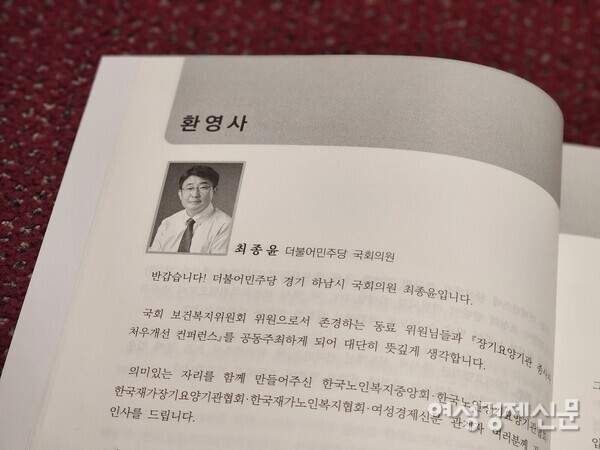 환영사
최종윤 더불어민주당 국회의원
반갑습니다! 더불어민주당 경기 하남시 국회의원 최종윤입니다.
국회 보건복지위원회 위원으로서 존경하는 동료 위원님들과 『장기요양기관 종사자
처우개선 컨퍼런스』를 공동주최하게 되어 대단히 뜻깊게 생각합니다.
의미있는 자리를 함께 만들어주신 한국노인복지중앙회·한국노인장기요양기관협회·
한국재가장기요양기관협회·한국재가노인복지협회·여성경제신문 관계자 여러분께
인사를 드립니다.
여성경제신문